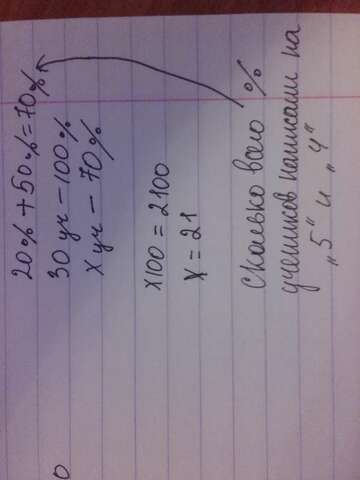 20% + 50% = 70%
30 уч - 100%
х уч - 70%
х100 = 2100
х = 21
Сколько всего %
учеников написали на
"5" и "4"